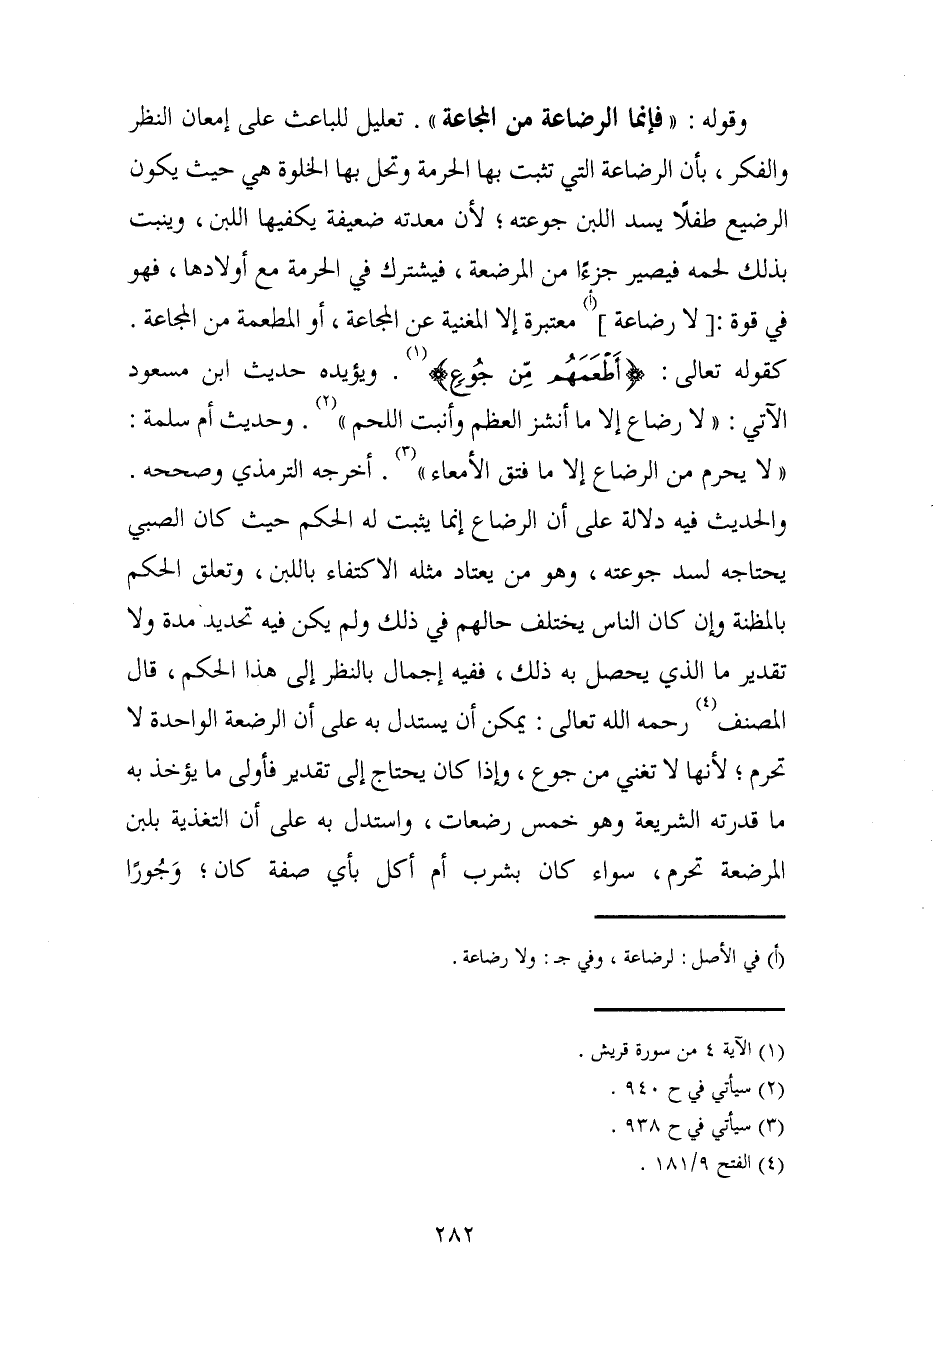 وقوله : « فإنما الرضاعة من المجاعة » . تعليل للباعث على إمعان النظر
والفكر ، بأن الرضاعة التي تثبت بها الحرمة وتحل بها الخلوة هي حيث يكون
الرضيع طفلًا يسد اللبن جوعته ؛ لأن معدته ضعيفة يكفيها اللبن ، وينبت
بذلك لحمه فيصير جزءًا من المرضعة ، فيشترك في الحرمة مع أولادها ، فهو
في قوة :[ لا رضاعة ](أ) معتبرة إلا المغنية عن المجاعة ، أو المطعمة من المجاعة .
كقوله تعالى : ﴿أَطْعَمَهُم مِّن جُوعٍ﴾(١) . ويؤيده حديث ابن مسعود
الآتي : « لا رضاع إلا ما أنشز العظم وأنبت اللحم »(٢) . وحديث أم سلمة :
« لا يحرم من الرضاع إلا ما فتق الأمعاء »(٣) . أخرجه الترمذي وصححه .
والحديث فيه دلالة على أن الرضاع إنما يثبت له الحكم حيث كان الصبي
يحتاجه لسد جوعته ، وهو من يعتاد مثله الاكتفاء باللبن ، وتعلق الحكم
بالمظنة وإن كان الناس يختلف حالهم في ذلك ولم يكن فيه تحديد مدة ولا
تقدير ما الذي يحصل به ذلك ، ففيه إجمال بالنظر إلى هذا الحكم ، قال
المصنف(٤) رحمه الله تعالى : يمكن أن يستدل به على أن الرضعة الواحدة لا
تحرم ؛ لأنها لا تغني من جوع ، وإذا كان يحتاج إلى تقدير فأولى ما يؤخذ به
ما قدرته الشريعة وهو خمس رضعات ، واستدل به على أن التغذية بلبن
المرضعة تحرم ، سواء كان بشرب أم أكل بأي صفة كان ؛ وَجُورًا
(أ) في الأصل : لرضاعة ، وفي جـ : ولا رضاعة .
(١) الآية ٤ من سورة قريش .
(٢) سيأتي في ح ٩٤٠ .
(٣) سيأتي في ح ٩٣٨ .
(٤) الفتح ١٨١/٩ .
٢٨٢